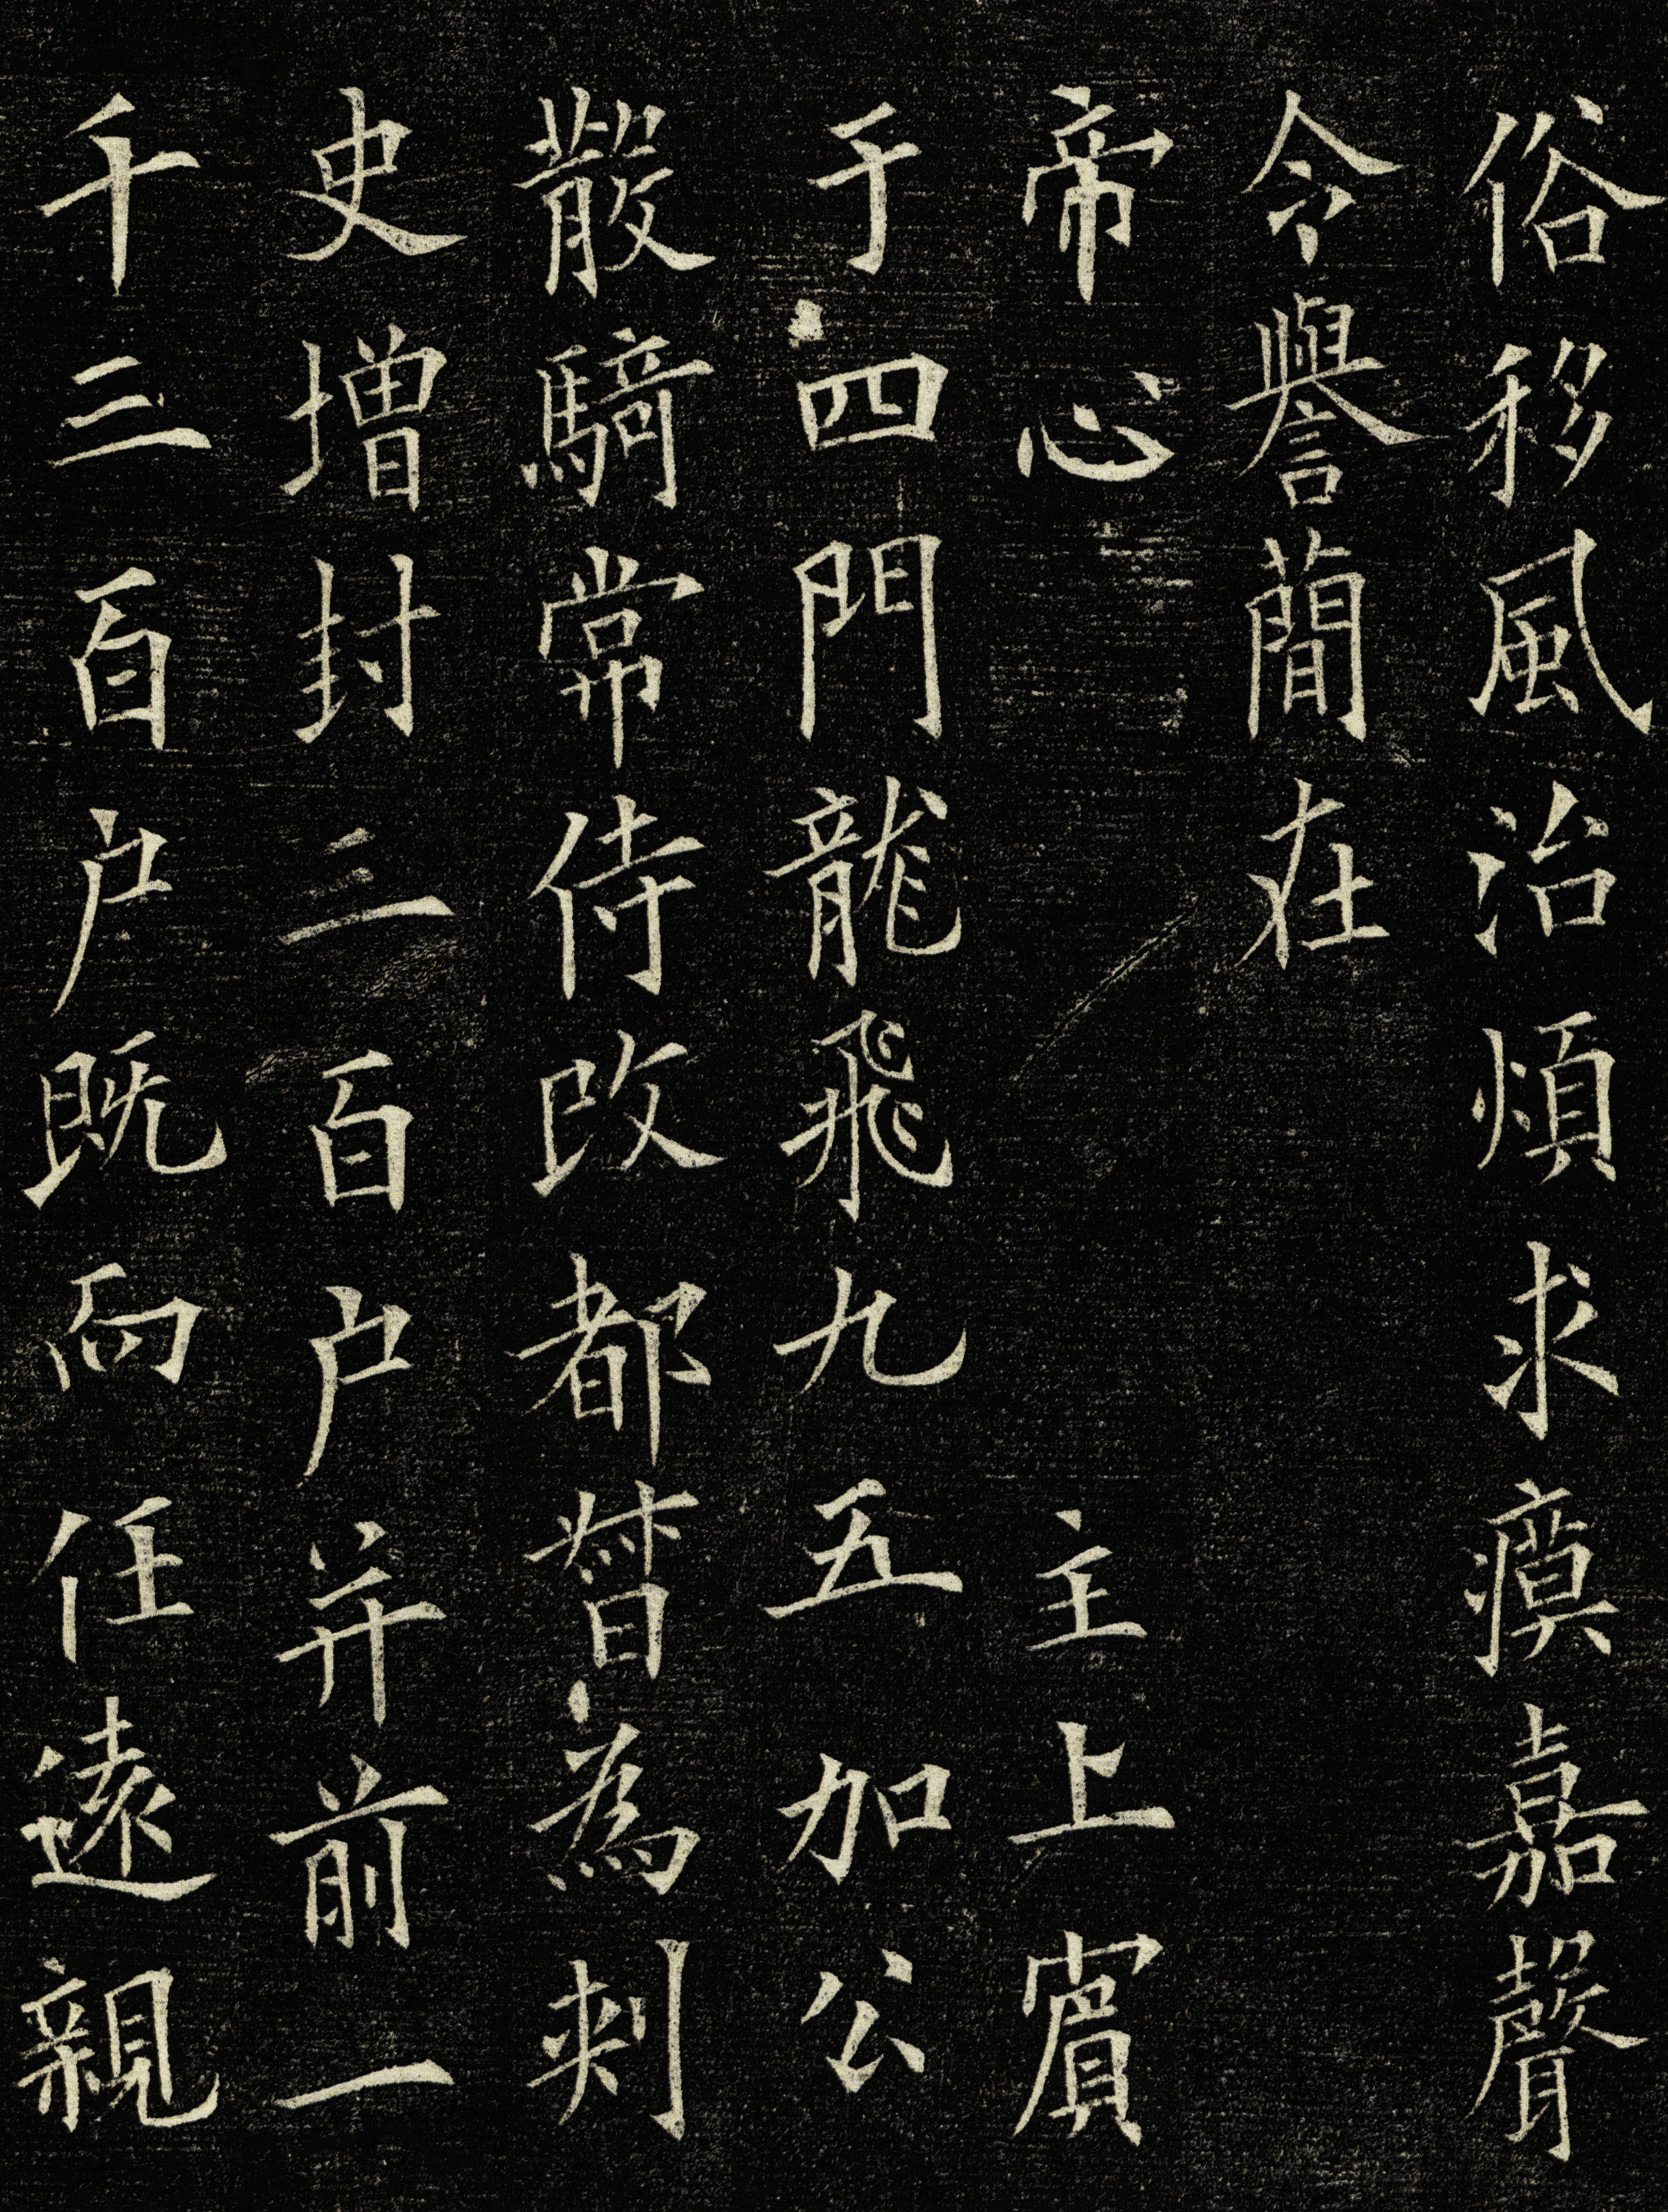 俗移風治煩求瘼嘉聲
令譽簡在
帝心 主上賓
于四門龍飛九五加公
散騎常侍改都督為刺
史增封三百戶并前一
千三百戶既而任遠親